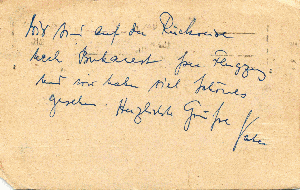 Wir sind auf der Rückreise
nach Bukarest per Flugzeug
und wir haben viel Schönes
gesehen. Herzlichste Grüße